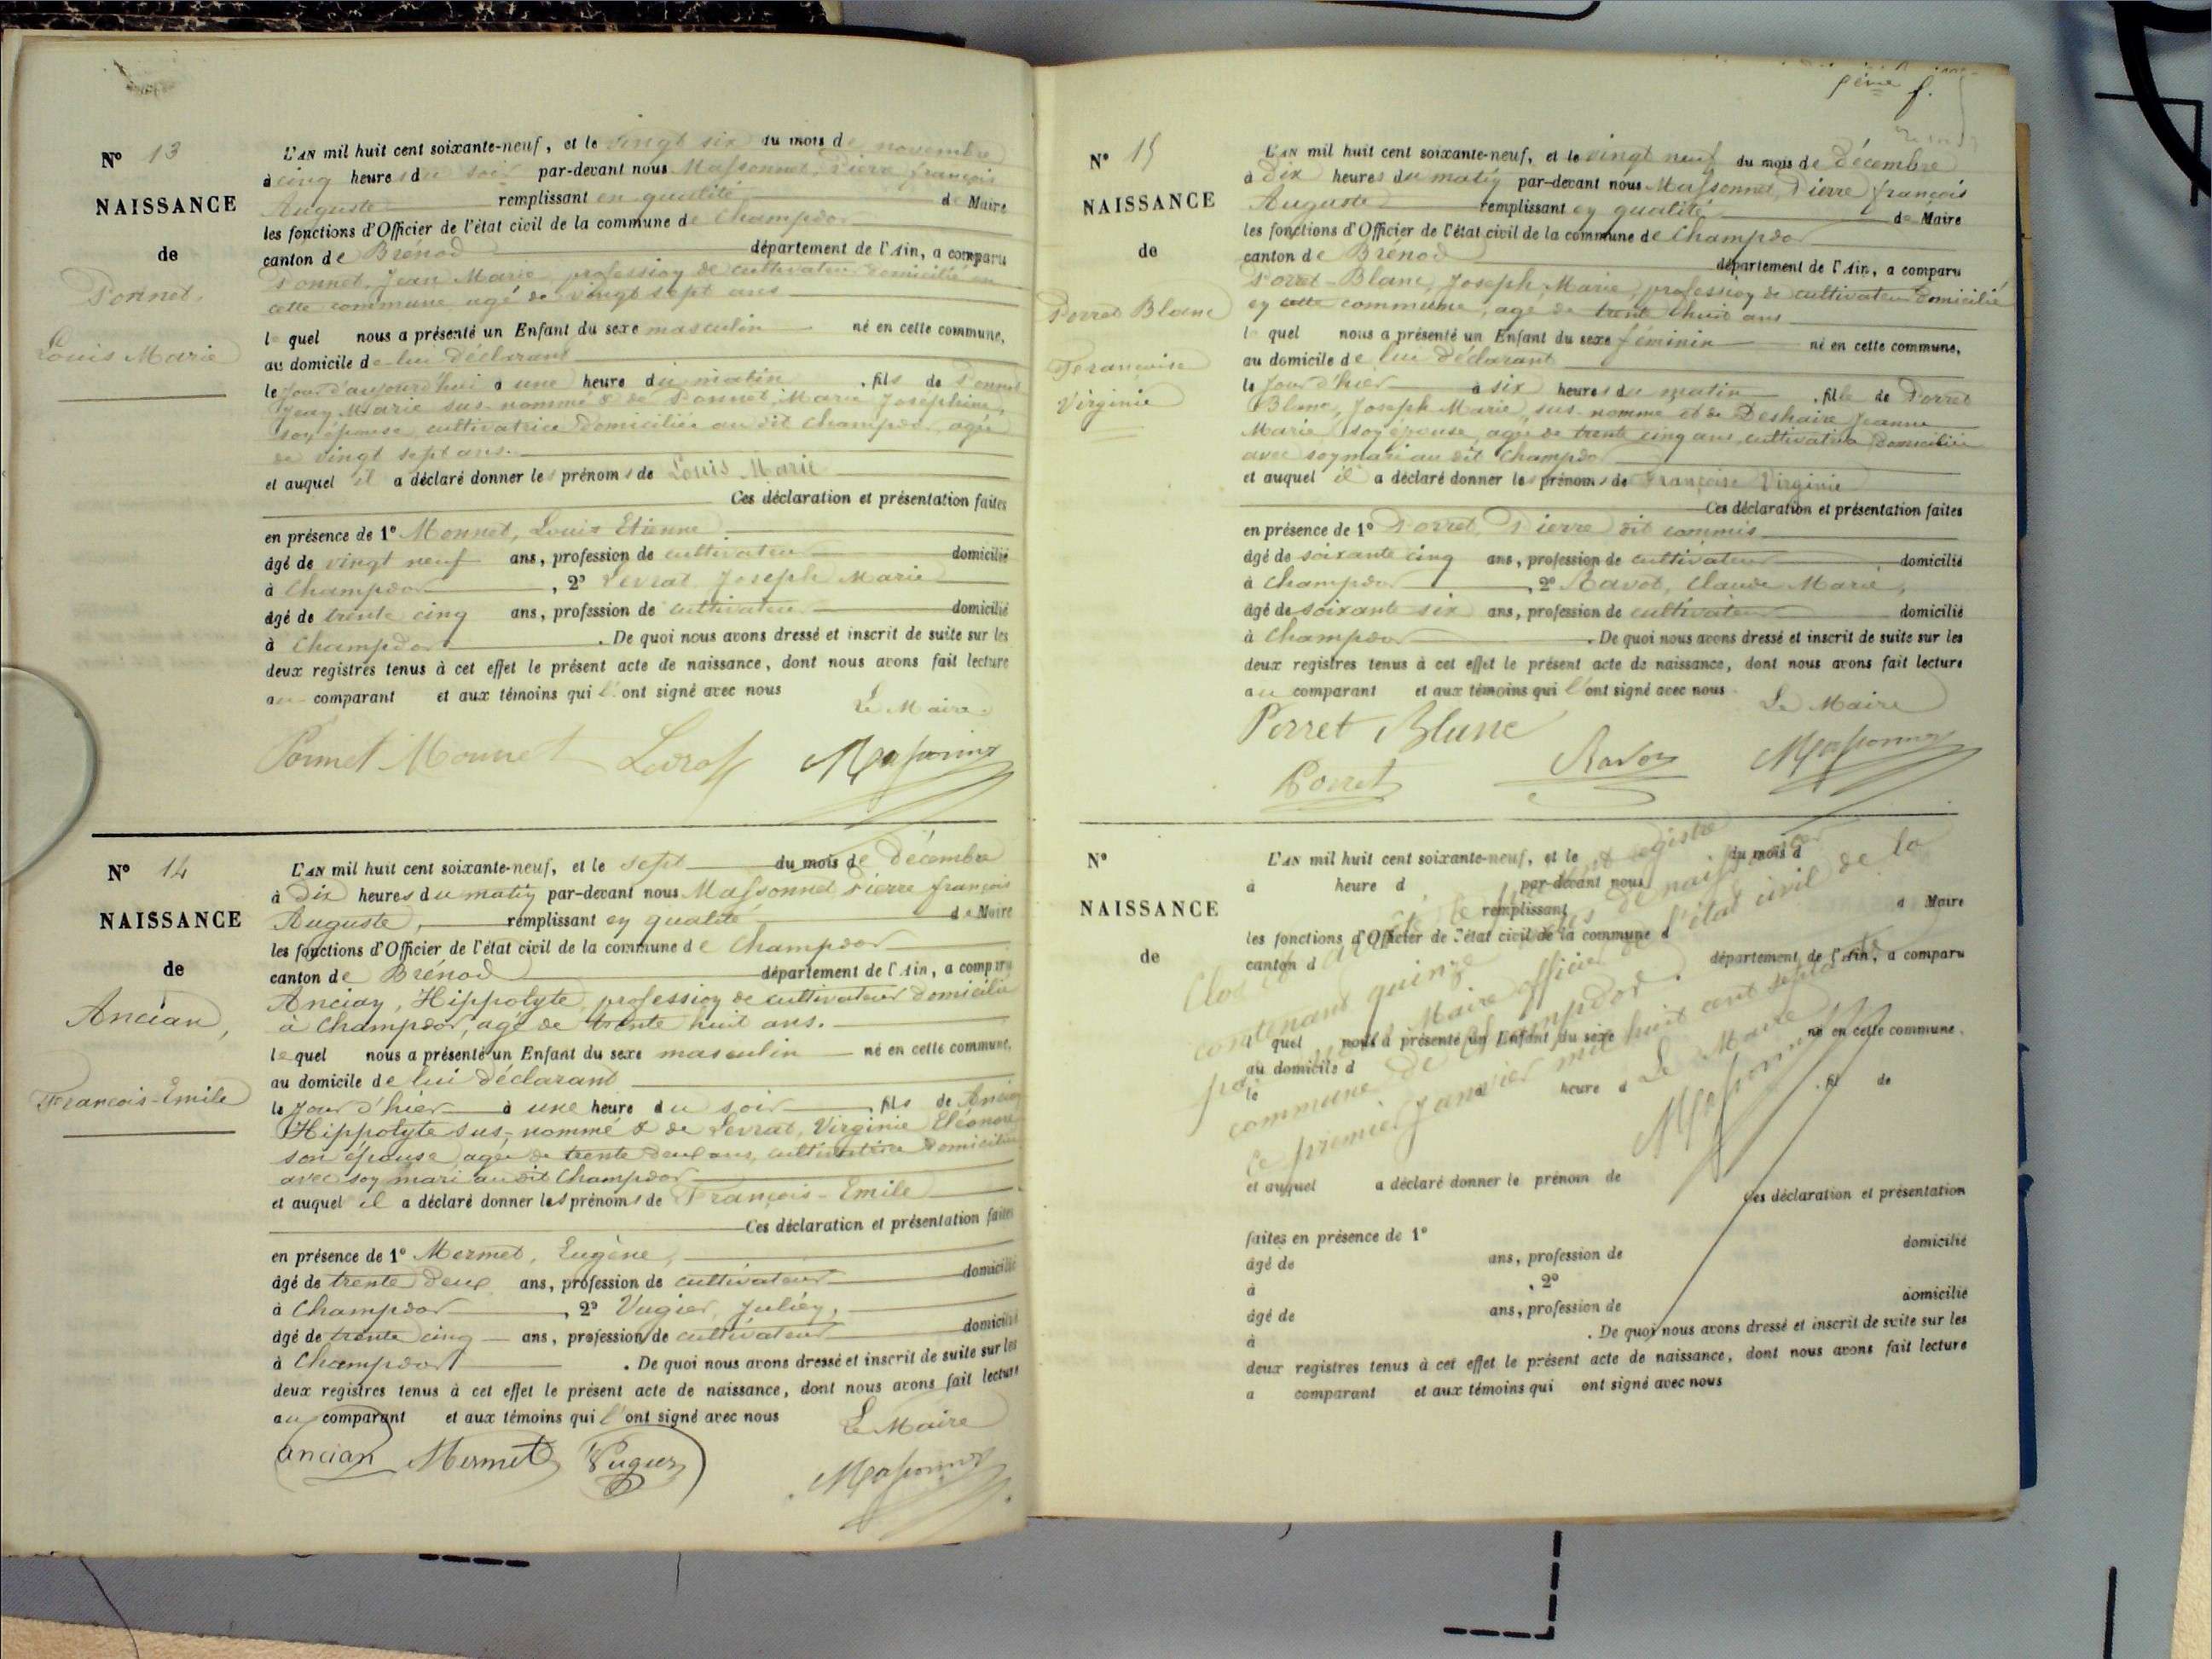 N° 13
NAISSANCE
de
Ponnet,
Louis Marie
L'AN mil huit cent soixante-neuf, et le vingt six du mois de novembre
à cinq heures du soir par-devant nous Massonnet, Pierre françois
Auguste remplissant en qualité de Maire
les fonctions d'Officier de l'état civil de la commune de Champdor
canton de Brénod département de l'Ain, a comparu
Ponnet, Jean Marie, profession de cultivateur domicilié en
cette commune agé de vingt sept ans
lequel nous a présenté un Enfant du sexe masculin né en cette commune,
au domicile de lui déclarant
le jour d'aujourd'hui à une heure du matin, fils de Ponnet
Jean Marie sus-nommé & de Ponnet, Marie Josephine,
son épouse, cultivatrice domiciliée au dit Champdor, agée
de vingt sept ans.
et auquel il a déclaré donner les prénoms de Louis Marie
Ces déclaration et présentation faites
en présence de 1° Monnet, Louis Etienne
âgé de vingt neuf ans, profession de cultivateur domicilié
à Champdor, 2° Levrat Joseph Marie
âgé de trente cinq ans, profession de cultivateur domicilié
à Champdor. De quoi nous avons dressé et inscrit de suite sur les
deux registres tenus à cet effet le présent acte de naissance, dont nous avons fait lecture
au comparant et aux témoins qui l'ont signé avec nous
Le Maire
Ponnet Monnet Levrat Massonnet
N° 14
NAISSANCE
de
Ancian,
François-Emile
L'AN mil huit cent soixante-neuf, et le sept du mois de Décembre
à Dix heures du matin par-devant nous Massonnet Pierre françois
Auguste, remplissant en qualité de Maire
les fonctions d'Officier de l'état civil de la commune de Champdor
canton de Brénod département de l'Ain, a comparu
Ancian, Hippolyte, profession de cultivateur domicilié
à Champdor, agé de trente huit ans.
lequel nous a présenté un Enfant du sexe masculin né en cette commune,
au domicile de lui déclarant
le jour d'hier à une heure du soir, fils de Ancian
Hippolyte sus-nommé & de Levrat, Virginie Eléonore
son épouse agée de trente deux ans, cultivatrice domiciliée
avec son mari au dit Champdor
et auquel il a déclaré donner les prénoms de François-Emile
Ces déclaration et présentation faites
en présence de 1° Mermet, Eugène,
âgé de trente deux ans, profession de cultivateur domicilié
à Champdor, 2° Vugier, Julien,
âgé de trente cinq ans, profession de cultivateur domicilié
à Champdor. De quoi nous avons dressé et inscrit de suite sur les
deux registres tenus à cet effet le présent acte de naissance, dont nous avons fait lecture
au comparant et aux témoins qui l'ont signé avec nous
Le Maire
ancian Mermet Vugier Massonnet
N° 15
NAISSANCE
de
Porret Blanc
Françoise
Virginie
L'AN mil huit cent soixante-neuf, et le vingt neuf du mois de Décembre
à Dix heures du matin par-devant nous Massonnet, Pierre françois
Auguste remplissant en qualité de Maire
les fonctions d'Officier de l'état civil de la commune de Champdor
canton de Brénod département de l'Ain, a comparu
Porret-Blanc, Joseph Marie, profession de cultivateur domicilié
en cette commune, agé de trente huit ans
lequel nous a présenté un Enfant du sexe féminin né en cette commune,
au domicile de lui déclarant
le jour d'hier à six heures du matin, fille de Porret
Blanc, Joseph Marie, sus-nommé et de Deshaire Jeanne
Marie, son épouse, agée de trente cinq ans, cultivatrice domiciliée
avec son mari au dit Champdor
et auquel il a déclaré donner les prénoms de Françoise Virginie
Ces déclaration et présentation faites
en présence de 1° Porret, Pierre dit commis
âgé de soixante cinq ans, profession de cultivateur domicilié
à Champdor, 2° Ravot, Claude Marie,
âgé de soixante six ans, profession de cultivateur domicilié
à Champdor. De quoi nous avons dressé et inscrit de suite sur les
deux registres tenus à cet effet le présent acte de naissance, dont nous avons fait lecture
au comparant et aux témoins qui l'ont signé avec nous
Le Maire
Porret Blanc
Porret Ravot Massonnet
N°
NAISSANCE
de
L'AN mil huit cent soixante-neuf, et le du mois d
à heure d par-devant nous
remplissant d Maire
les fonctions d'Officier de l'état civil de la commune d
canton d département de l'Ain, a comparu
l quel nous a présenté un Enfant du sexe né en cette commune.
au domicile d
le à heure d , fil de
et auquel a déclaré donner le prénom de
Ces déclaration et présentation
faites en présence de 1°
âgé de ans, profession de domicilié
à , 2°
âgé de ans, profession de domicilié
à . De quoi nous avons dressé et inscrit de suite sur les
deux registres tenus à cet effet le présent acte de naissance, dont nous avons fait lecture
a comparant et aux témoins qui ont signé avec nous
Clos et arrêté le présent registre
contenant quinze actes de naissances
par nous Maire officier de l'état civil de la
commune de Champdor.
ce premier Janvier mil huit cent septante
Le Maire
Massonnet